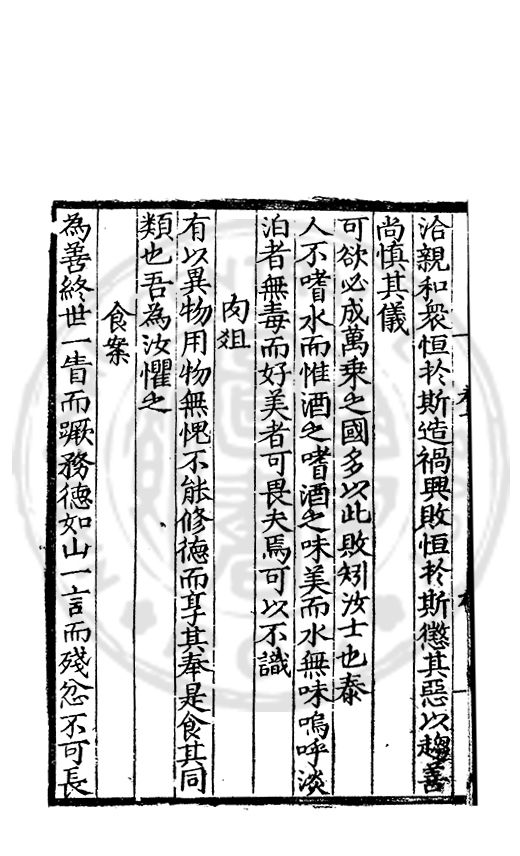 洽親和衆恒於斯造禍興敗恒於斯懲其惡以趨善
尚慎其儀
可欲必成萬乗之國多以此敗矧汝士也泰
人不嗜水而惟酒之嗜酒之味美而水無味嗚呼淡
泊者無毒而好美者可畏夫焉可以不識
肉俎
有以異物用物無愧不能修德而享其奉是食其同
類也吾為汝懼之
食案
為善終世一眚而蹶務德如山一言而殘忿不可長